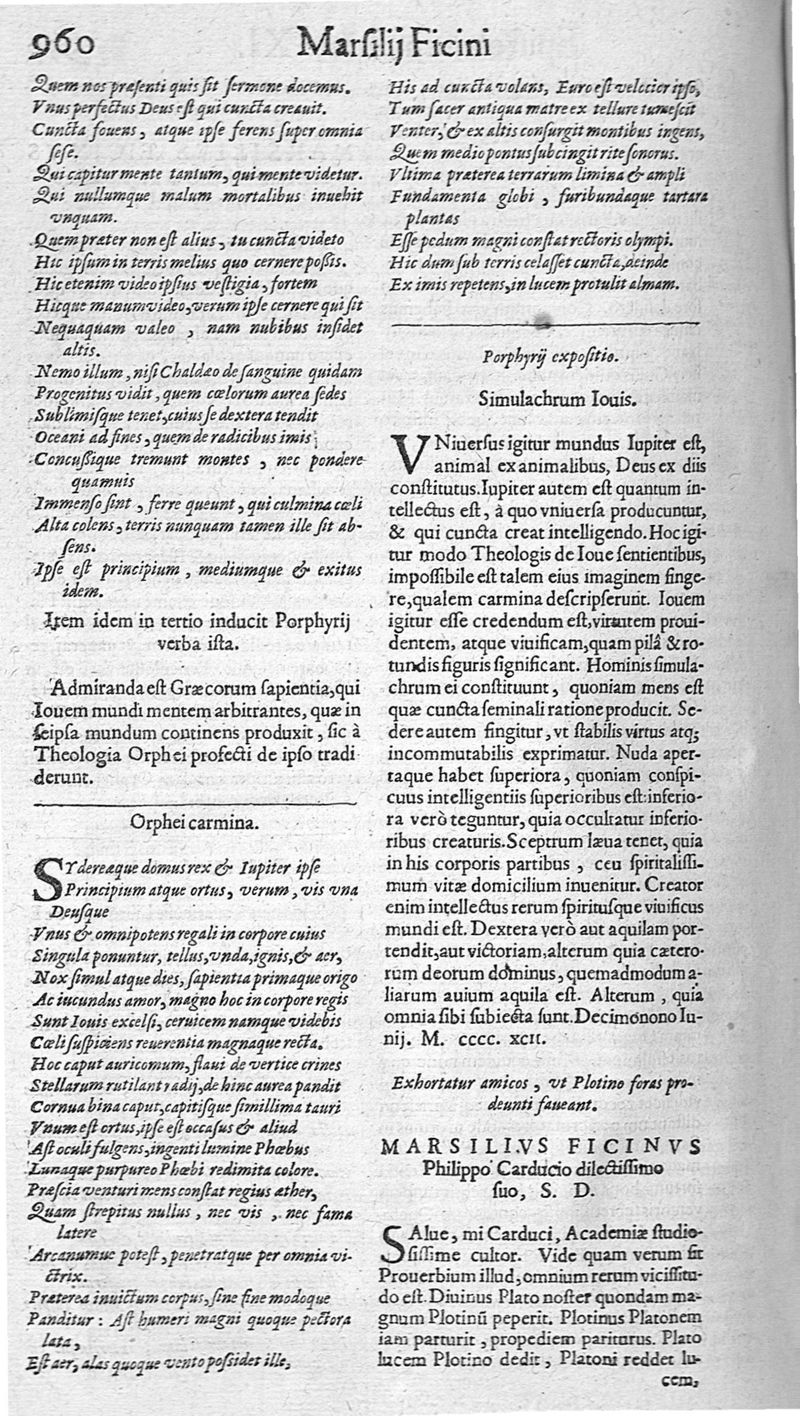 960
Marsilij Ficini
Quem nos præsenti quis sit sermone docemus.
Vnus perfectus Deus est qui cuncta creauit.
Cuncta fouens, atque ipse ferens super omnia
sese.
Qui capitur mente tantum, qui mente videtur.
Qui nullumque malum mortalibus inuehit
vnquam.
Quem præter non est alius, tu cuncta videto
Hic ipsum in terris melius quo cernere poßis.
Hic etenim video ipsius vestigia, fortem
Hicque manum video, verum ipse cernere qui sit
Nequaquam valeo, nam nubibus insidet
altis.
Nemo illum, nisi Chaldæo de sanguine quidam
Progenitus vidit, quem cœlorum aurea sedes
Sublimisque tenet, cuius se dextera tendit
Oceani ad fines, quem de radicibus imis
Concußique tremunt montes, nec pondere
quamuis
Immenso sint, ferre queunt, qui culmina cœli
Alta colens, terris nunquam tamen ille sit ab-
sens.
Ipse est principium, mediumque & exitus
idem.
Item idem in tertio inducit Porphyrij
verba ista.
Admiranda est Græcorum sapientia, qui
Iouem mundi mentem arbitrantes, quæ in
seipsa mundum continens produxit, sic à
Theologia Orphei profecti de ipso tradi
derunt.
Orphei carmina.
SYdereaque domus rex & Iupiter ipse
Principium atque ortus, verum, vis vna
Deusque
Vnus & omnipotens regali in corpore cuius
Singula ponuntur, tellus, vnda, ignis, & aer,
Nox simul atque dies, sapientia primaque origo
Ac iucundus amor, magno hoc in corpore regis
Sunt Iouis excelsi, ceruicem namque videbis
Cœli suspiciens reuerentia magnaque recta.
Hoc caput auricomum, flaui de vertice crines
Stellarum rutilant radij, de hinc aurea pandit
Cornua bina caput, capitisque simillima tauri
Vnum est ortus, ipse est occasus & aliud
Ast oculi fulgens, ingenti lumine Phœbus
Lunaque purpureo Phœbi redimita colore.
Præscia venturi mens constat regius æther,
Quam strepitus nullus, nec vis, nec fama
latere
Arcanumue potest, penetratque per omnia vi-
ctrix.
Præterea inuictum corpus, sine fine modoque
Panditur: Ast humeri magni quoque pectora
lata,
Est aer, alas quoque vento possidet ille,
His ad cuncta volans, Euro est velocior ipso,
Tum sacer antiqua matre ex tellure tumescit
Venter, & ex altis consurgit montibus ingens,
Quem medio pontus subcingit rite sonorus.
Vltima præterea terrarum limina & ampli
Fundamenta globi, furibundaque tartara
plantas
Esse pedum magni constat rectoris olympi.
Hic dum sub terris celasset cuncta, deinde
Ex imis repetens, in lucem protulit almam.
Porphyrij expositio.
Simulachrum Iouis.
VNiuersus igitur mundus Iupiter est,
animal ex animalibus, Deus ex diis
constitutus. Iupiter autem est quantum in-
tellectus est, à quo vniuersa producuntur,
& qui cuncta creat intelligendo. Hoc igi-
tur modo Theologis de Ioue sentientibus,
impossibile est talem eius imaginem finge-
re, qualem carmina descripserunt. Iouem
igitur esse credendum est, virtutem proui-
dentem, atque viuificam, quam pilâ & ro-
tundis figuris significant. Hominis simula-
chrum ei constituunt, quoniam mens est
quæ cuncta seminali ratione producit. Se-
dere autem fingitur, vt stabilis virtus atq;
incommutabilis exprimatur. Nuda aper-
taque habet superiora, quoniam conspi-
cuus intelligentiis superioribus est: inferio-
ra verò teguntur, quia occultatur inferio-
ribus creaturis. Sceptrum læua tenet, quia
in his corporis partibus, ceu spiritalissi-
mum vitæ domicilium inuenitur. Creator
enim intellectus rerum spiritusque viuificus
mundi est. Dextera verò aut aquilam por-
tendit, aut victoriam, alterum quia cætero-
rum deorum dominus, quemadmodum a-
liarum auium aquila est. Alterum, quia
omnia sibi subiecta sunt. Decimonono Iu-
nij. M. cccc. xcii.
Exhortatur amicos, vt Plotino foras pro-
deunti faueant.
MARSILIVS FICINVS
Philippo Carducio dilectissimo
suo, S. D.
SAlue, mi Carduci, Academiæ studio-
sissime cultor. Vide quam verum sit
Prouerbium illud, omnium rerum vicissitu-
do est. Diuinus Plato noster quondam ma-
gnum Plotinũ peperit. Plotinus Platonem
iam parturit, propediem pariturus. Plato
lucem Plotino dedit, Platoni reddet lu-
cem,